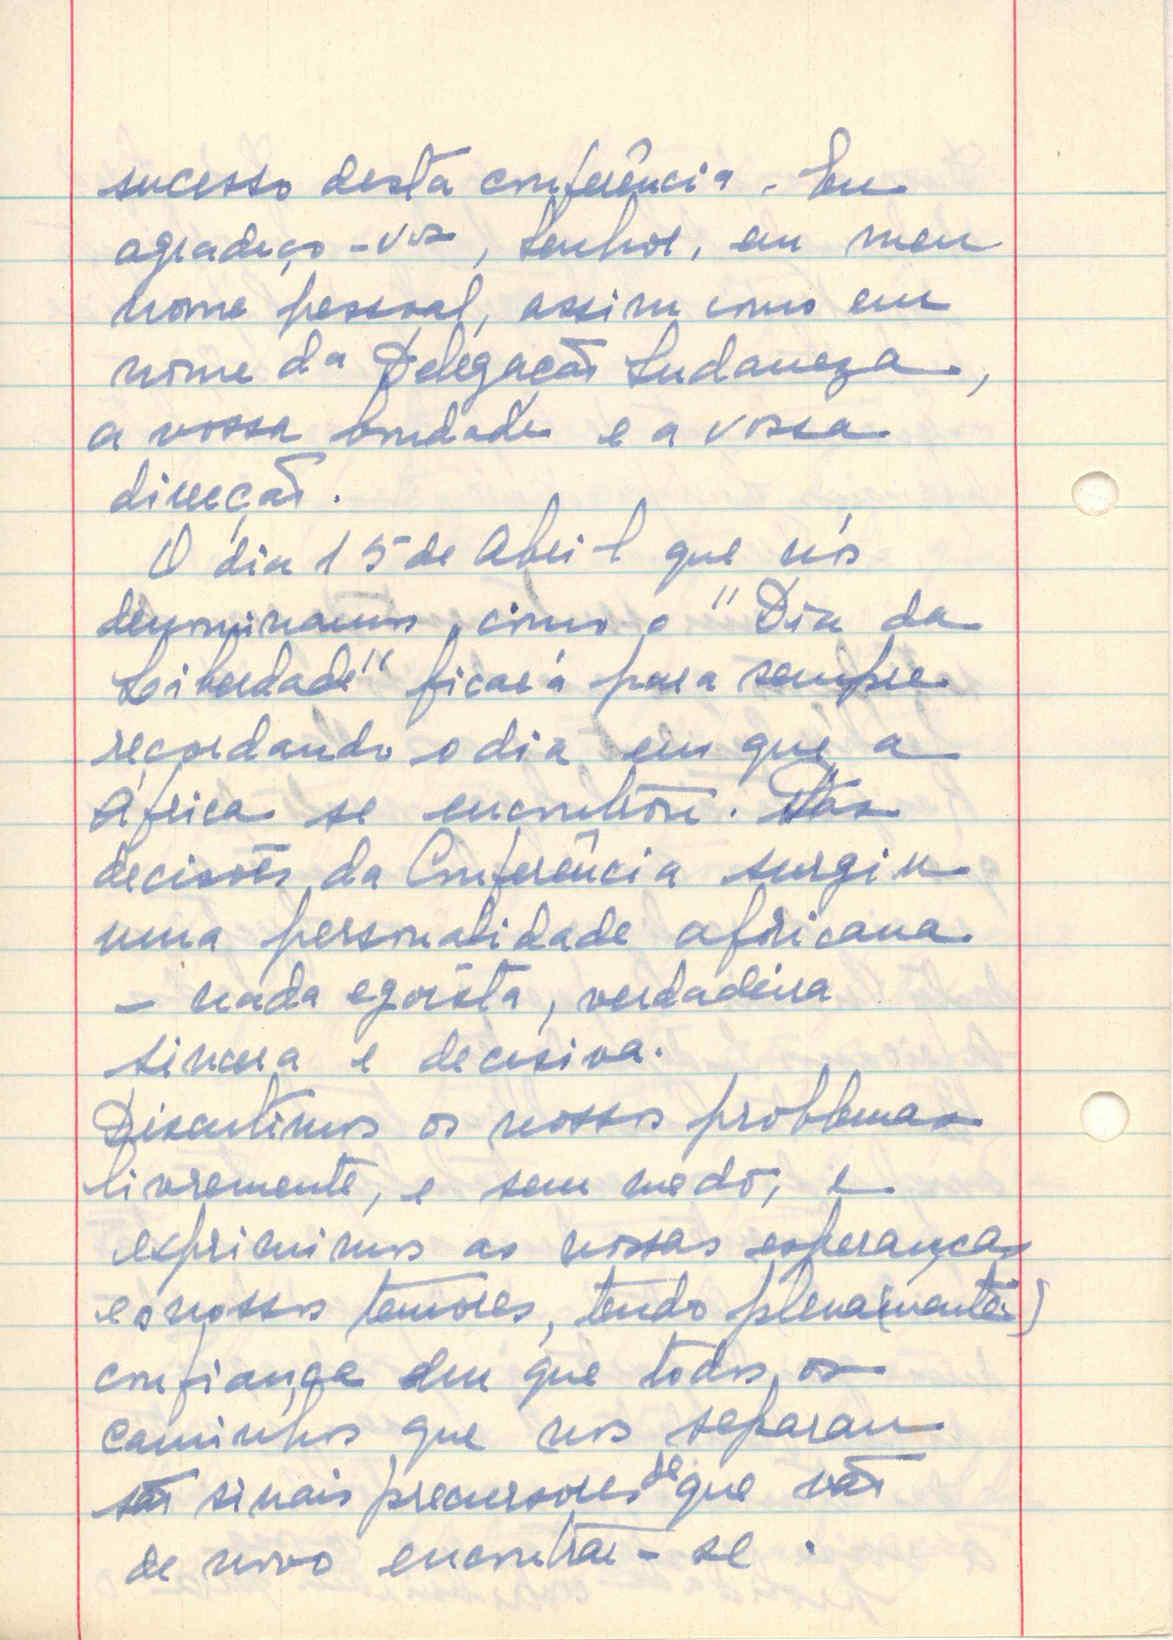 sucesso desta conferência. Eu
agradeço-vos, Senhor, em meu
nome pessoal, assim como em
nome da Delegação Sudaneza,
a vossa bondade e a vossa
direcção.
O dia 15 de Abril que nós
denominamos como o "Dia da
Liberdade" ficará para sempre
recordando o dia em que a
África se encontrou. Das
decisões da Conferência surgiu
uma personalidade africana
- nada egoísta, verdadeira
sincera e decisiva.
Discutimos os nossos problemas
livremente, e sem medo, e
exprimimos as nossas esperanças
e os nossos temores, tendo plena(mente)
confiança em que todos os
caminhos que nos separam
são sinais precursores de que vão
de novo encontrar-se.